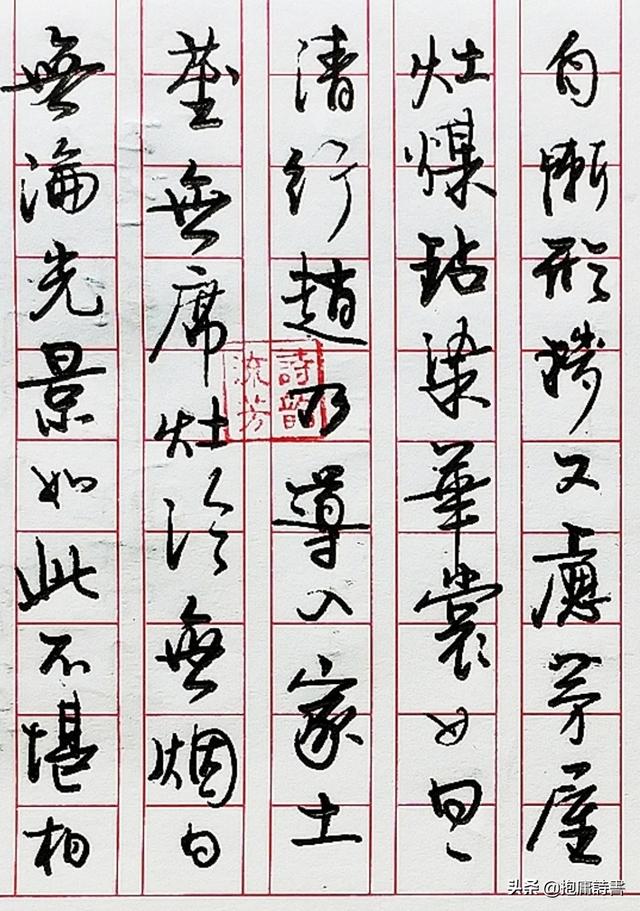 自慚形穢又慮茅屋
灶煤玷染華裳女曰
請行趨乃導入家土
莝無席灶冷無烟曰
無論光景如此不堪相
詩韻
流芳
头条 @抱庸詩書